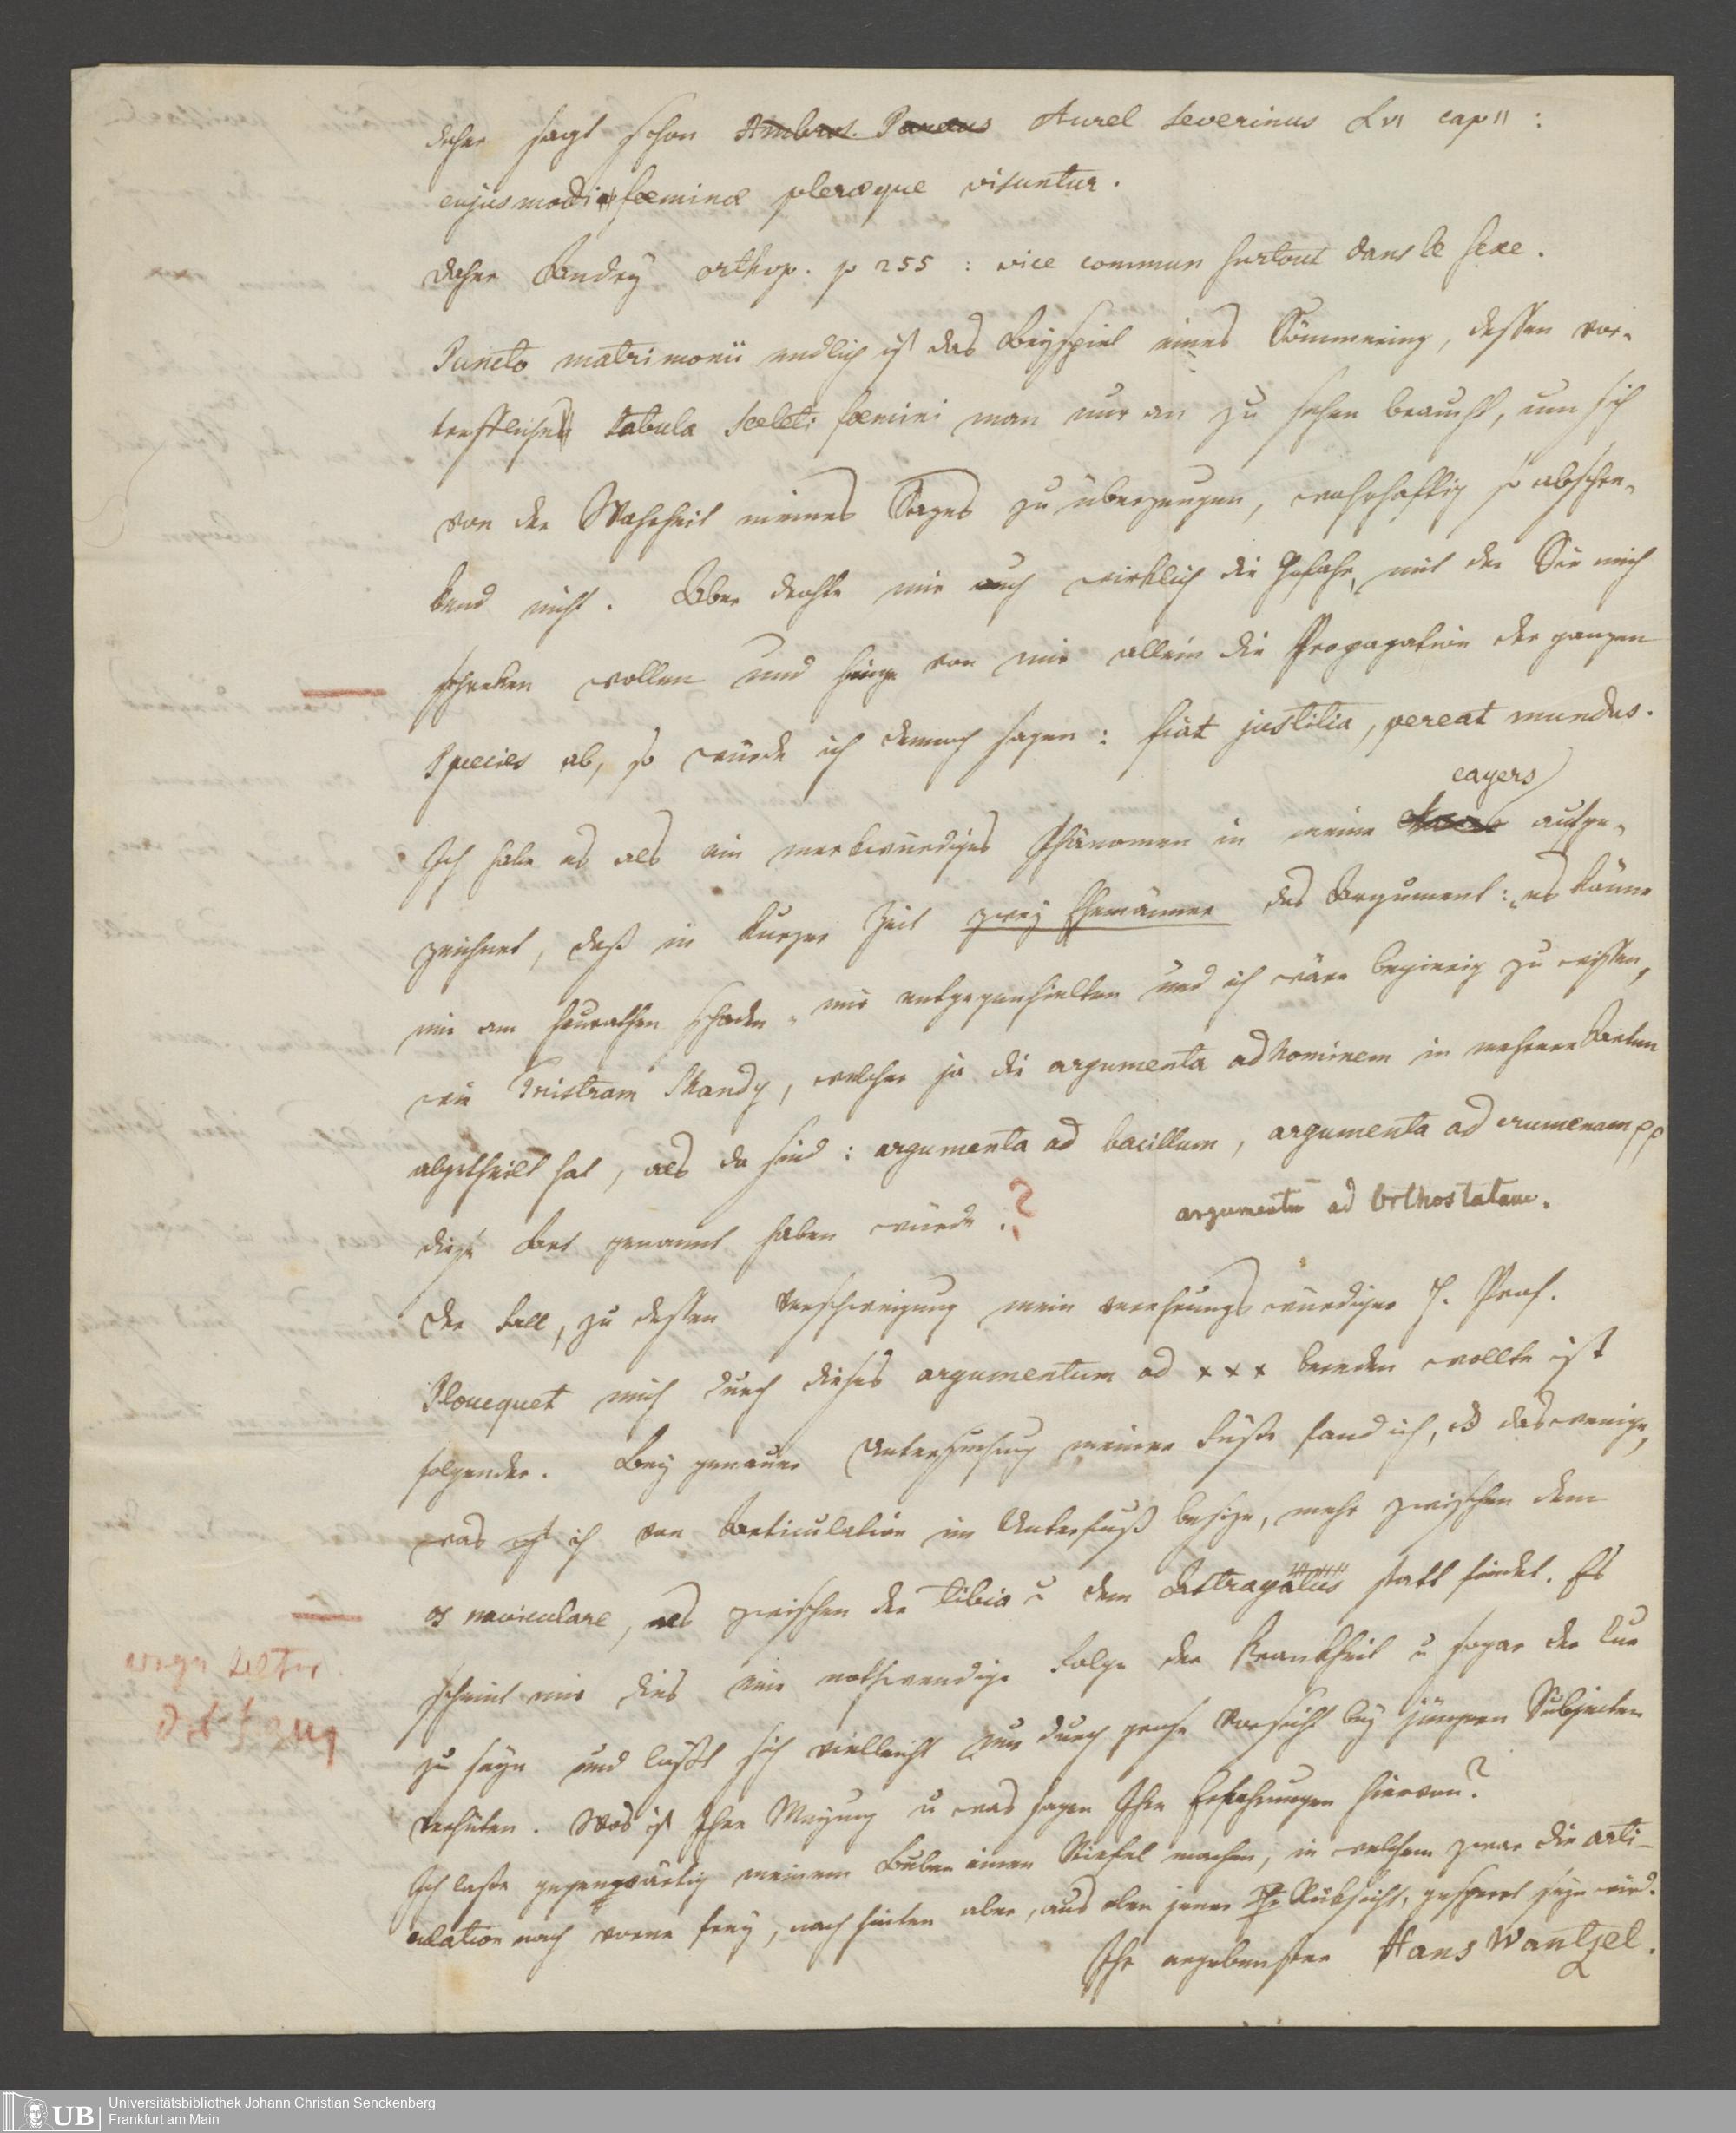 daher sagt schon Ambros. Paraeus Aurel Severinus L VI cap II :
cujusmodi foeminae pleraeque visuntur.
daher Andry orthop. p 255 : vice commun surtout dans le sexe.
Puncto matrimonii endlich ist das Beyspiel eines Sömmering, dessen vor-
treffliche tabula Sceleti foemini man nur an zu sehen braucht, um sich
von der Wahrheit meines Sazes zu überzeugen, wahrhaftig so abschre-
kend nicht. Aber drohte mir auch wirklich die Gefahr, mit der Sie mich
schreken wollen und hinge von mir allein die Propagation der ganzen
Species ab, so würde ich dennoch sagen: fiat justitia, pereat mundus.
cayers
Ich habe es als ein merkwürdiges Phänomen in meine aufge-
zeichnet, daß in kurzer Zeit zwey Ehemänner das Argument: „es könne
mir am heurathen schaden" mir entgegenhielten und ich wäre begierig zu wissen,
wie Tristram Shandy, welcher ja die argumenta ad hominem in mehrere Arten
abgetheilt hat, als da sind: argumenta ad bacillum, argumenta ad crumenam pp
diese Art genannt haben würde.? argumenta ad Orthostatam.
Der Fall, zu dessen Verschweigung mein verehrungswürdiger H. Prof.
Ploucquet mich durch dieses argumentum ad xxx bereden wollte ist
folgender. Bey genauer Untersuchung meiner Füße fand ich, daß das wenige,
was ich von Articulation im Unterfuß besize, mehr zwischen dem
os naviculare, als zwischen der Tibia u dem Astragalus statt findet. Es
scheint mir dies eine nothwendige Folge der Krankheit u sogar der Cur
zu seyn und läßt sich vielleicht nur durch große Vorsicht bey jüngern Subjecten
verhüten. Was ist Ihre Meynung u was sagen Ihre Erfahrungen hiervon?
Ich laße gegenwärtig meinem Buben einen Stiefel machen, in welchem zwar die arti-
culation nach vorne frey, nach hinten aber, aus eben jener Rüksicht, gesperrt seyn wird.
Ihr ergebenster Hans Wantzel.
Universitätsbibliothek Johann Christian Senckenberg
Frankfurt am Main
UB